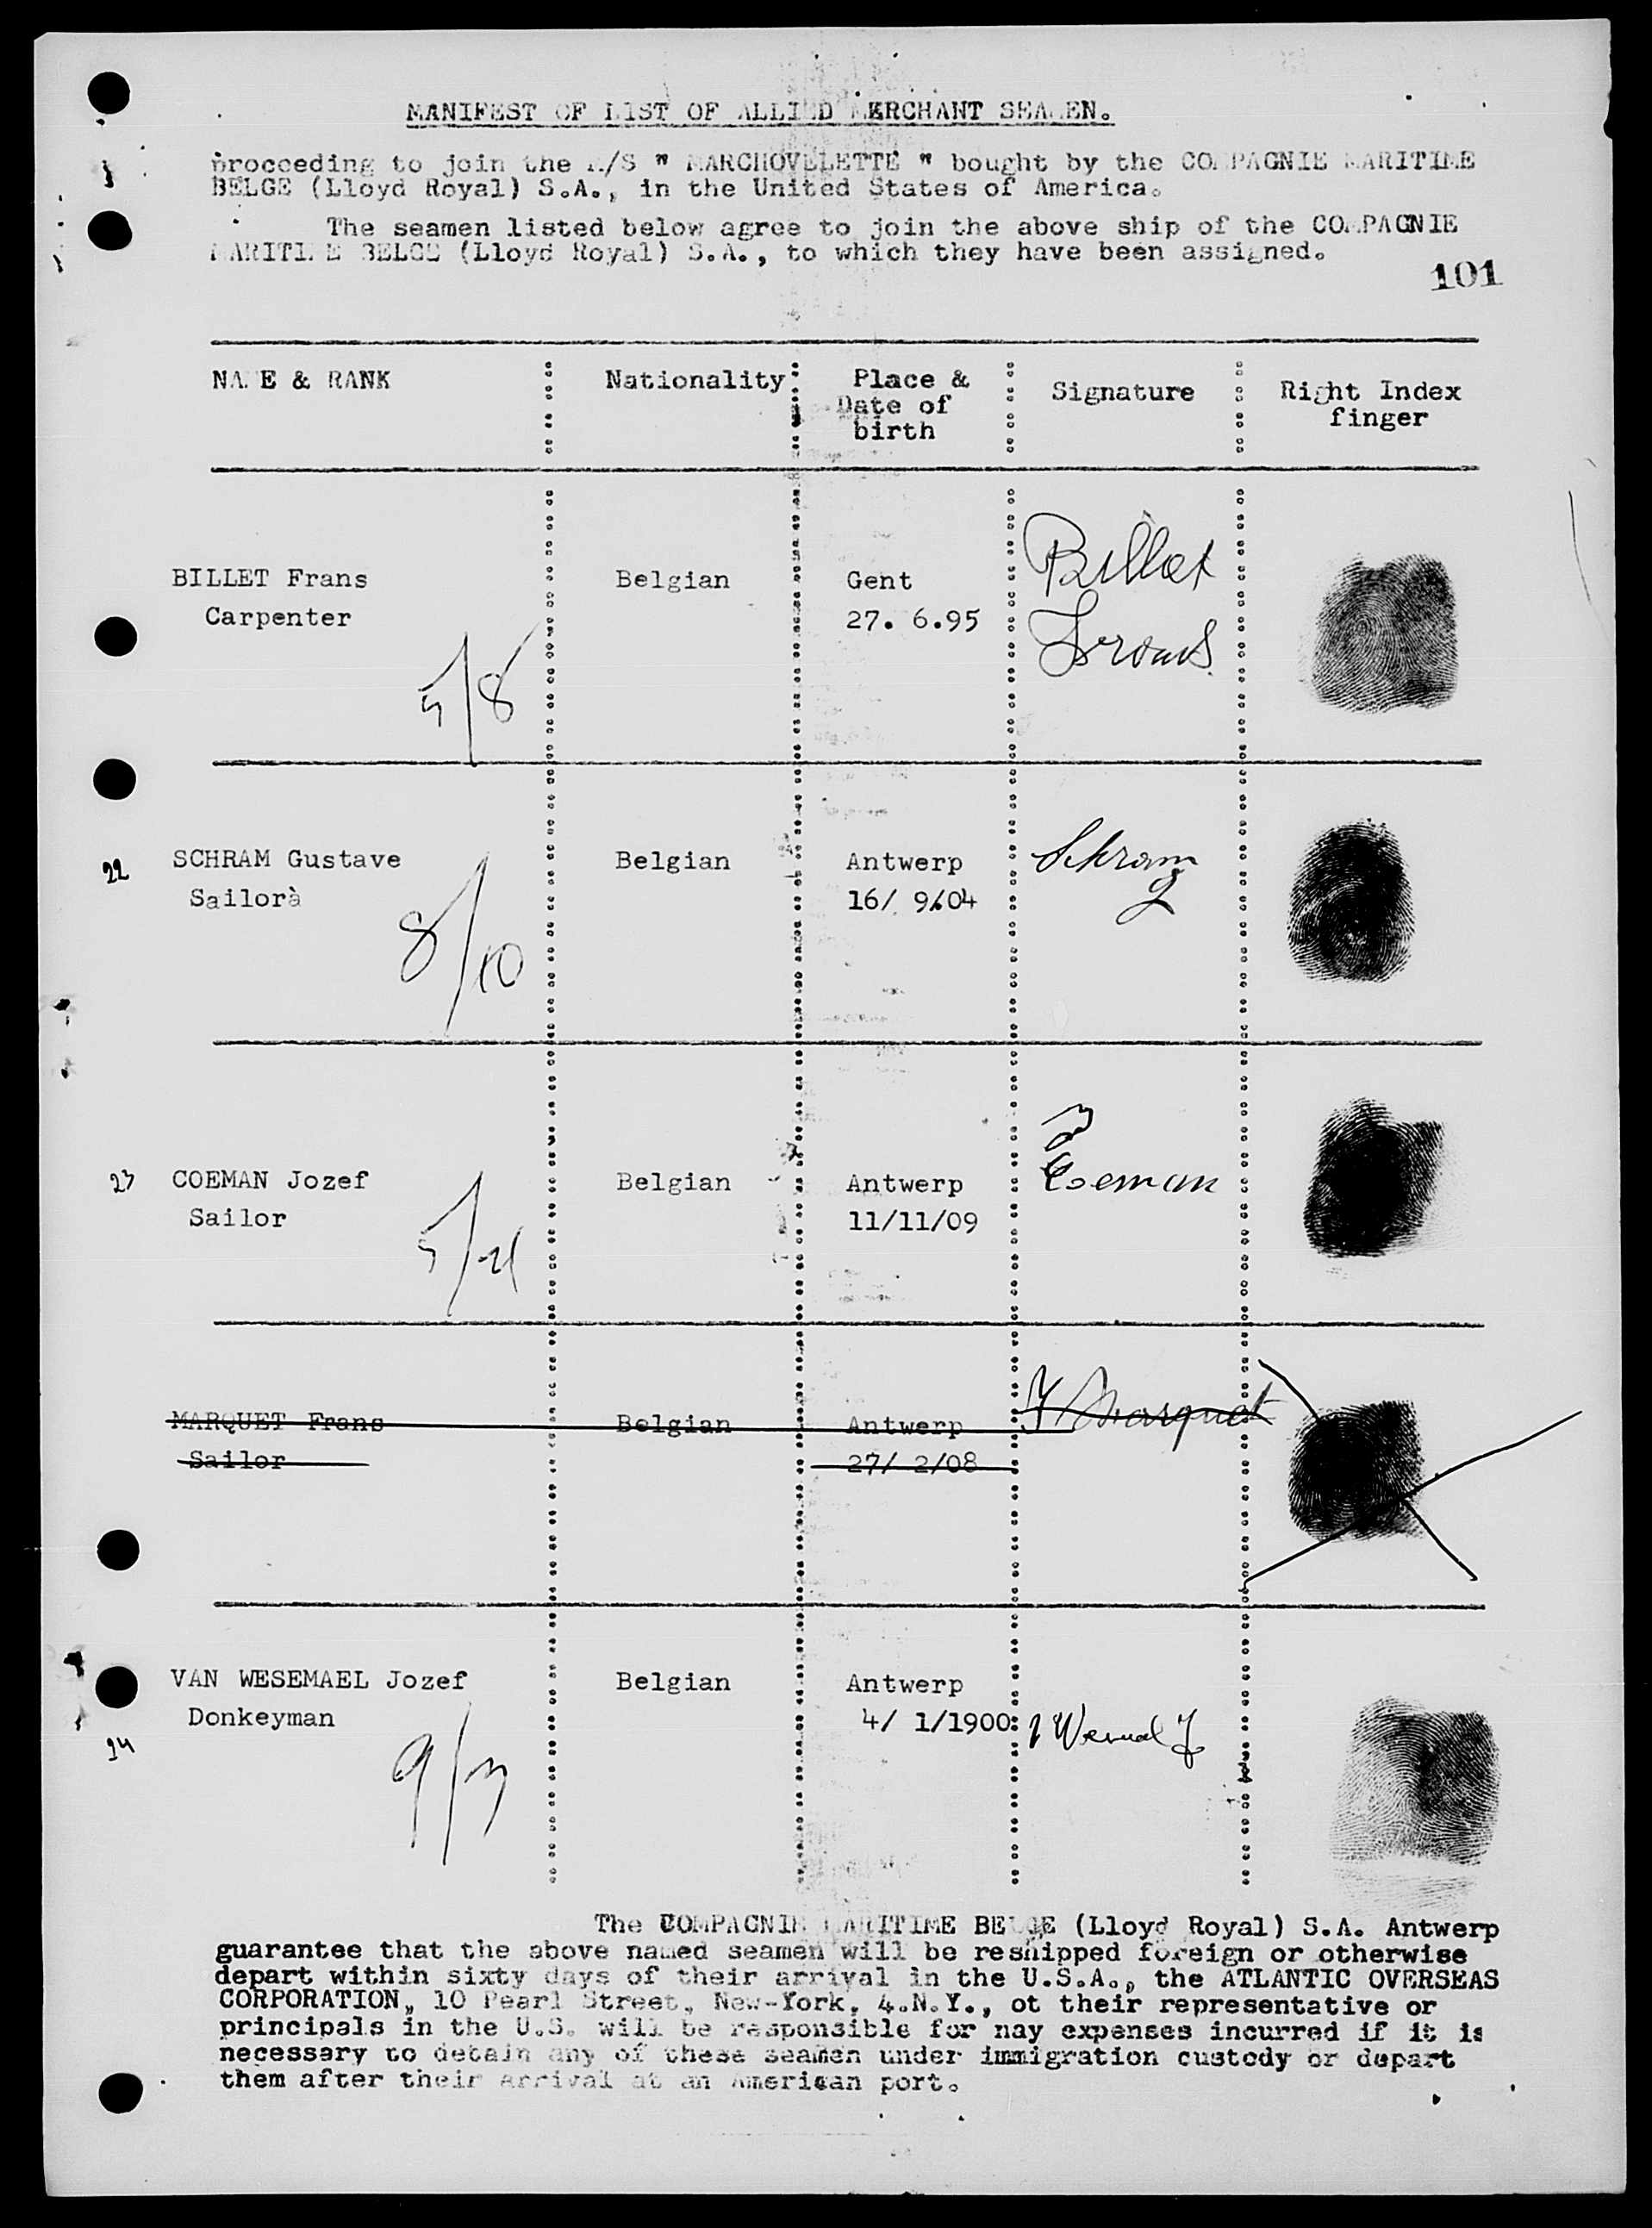 MANIFEST OF LIST OF ALLIED MERCHANT SEAMEN.
procceding to join the M/S " MARCHOVELETTE " bought by the COMPAGNIE MARITIME
BELGE (Lloyd Royal) S.A., in the United States of America.
The seamen listed below agree to join the above ship of the COMPAGNIE
MARITIME BELGE (Lloyd Royal) S.A., to which they have been assigned.
101
NAME & RANK Nationality Place & Signature Right Index
Date of finger
birth
BILLET Frans Belgian Gent Billet
Carpenter 27. 6.95 Frans
5/8
22 SCHRAM Gustave Belgian Antwerp Schram
Sailorà 16/ 9/04
8/10
23 COEMAN Jozef Belgian Antwerp Coeman
Sailor 11/11/09
5/
MARQUET Frans Belgian Antwerp F Marquet
Sailor 27/ 2/08
VAN WESEMAEL Jozef Belgian Antwerp
Donkeyman 4/ 1/1900
24
9/
The COMPAGNIE MARITIME BELGE (Lloyd Royal) S.A. Antwerp
guarantee that the above named seamen will be reshipped foreign or otherwise
depart within sixty days of their arrival in the U.S.A., the ATLANTIC OVERSEAS
CORPORATION, 10 Pearl Street, New-York, 4.N.Y., ot their representative or
principals in the U.S. will be responsible for nay expenses incurred if it is
necessary to detain any of these seamen under immigration custody or depart
them after their arrival at an American port.